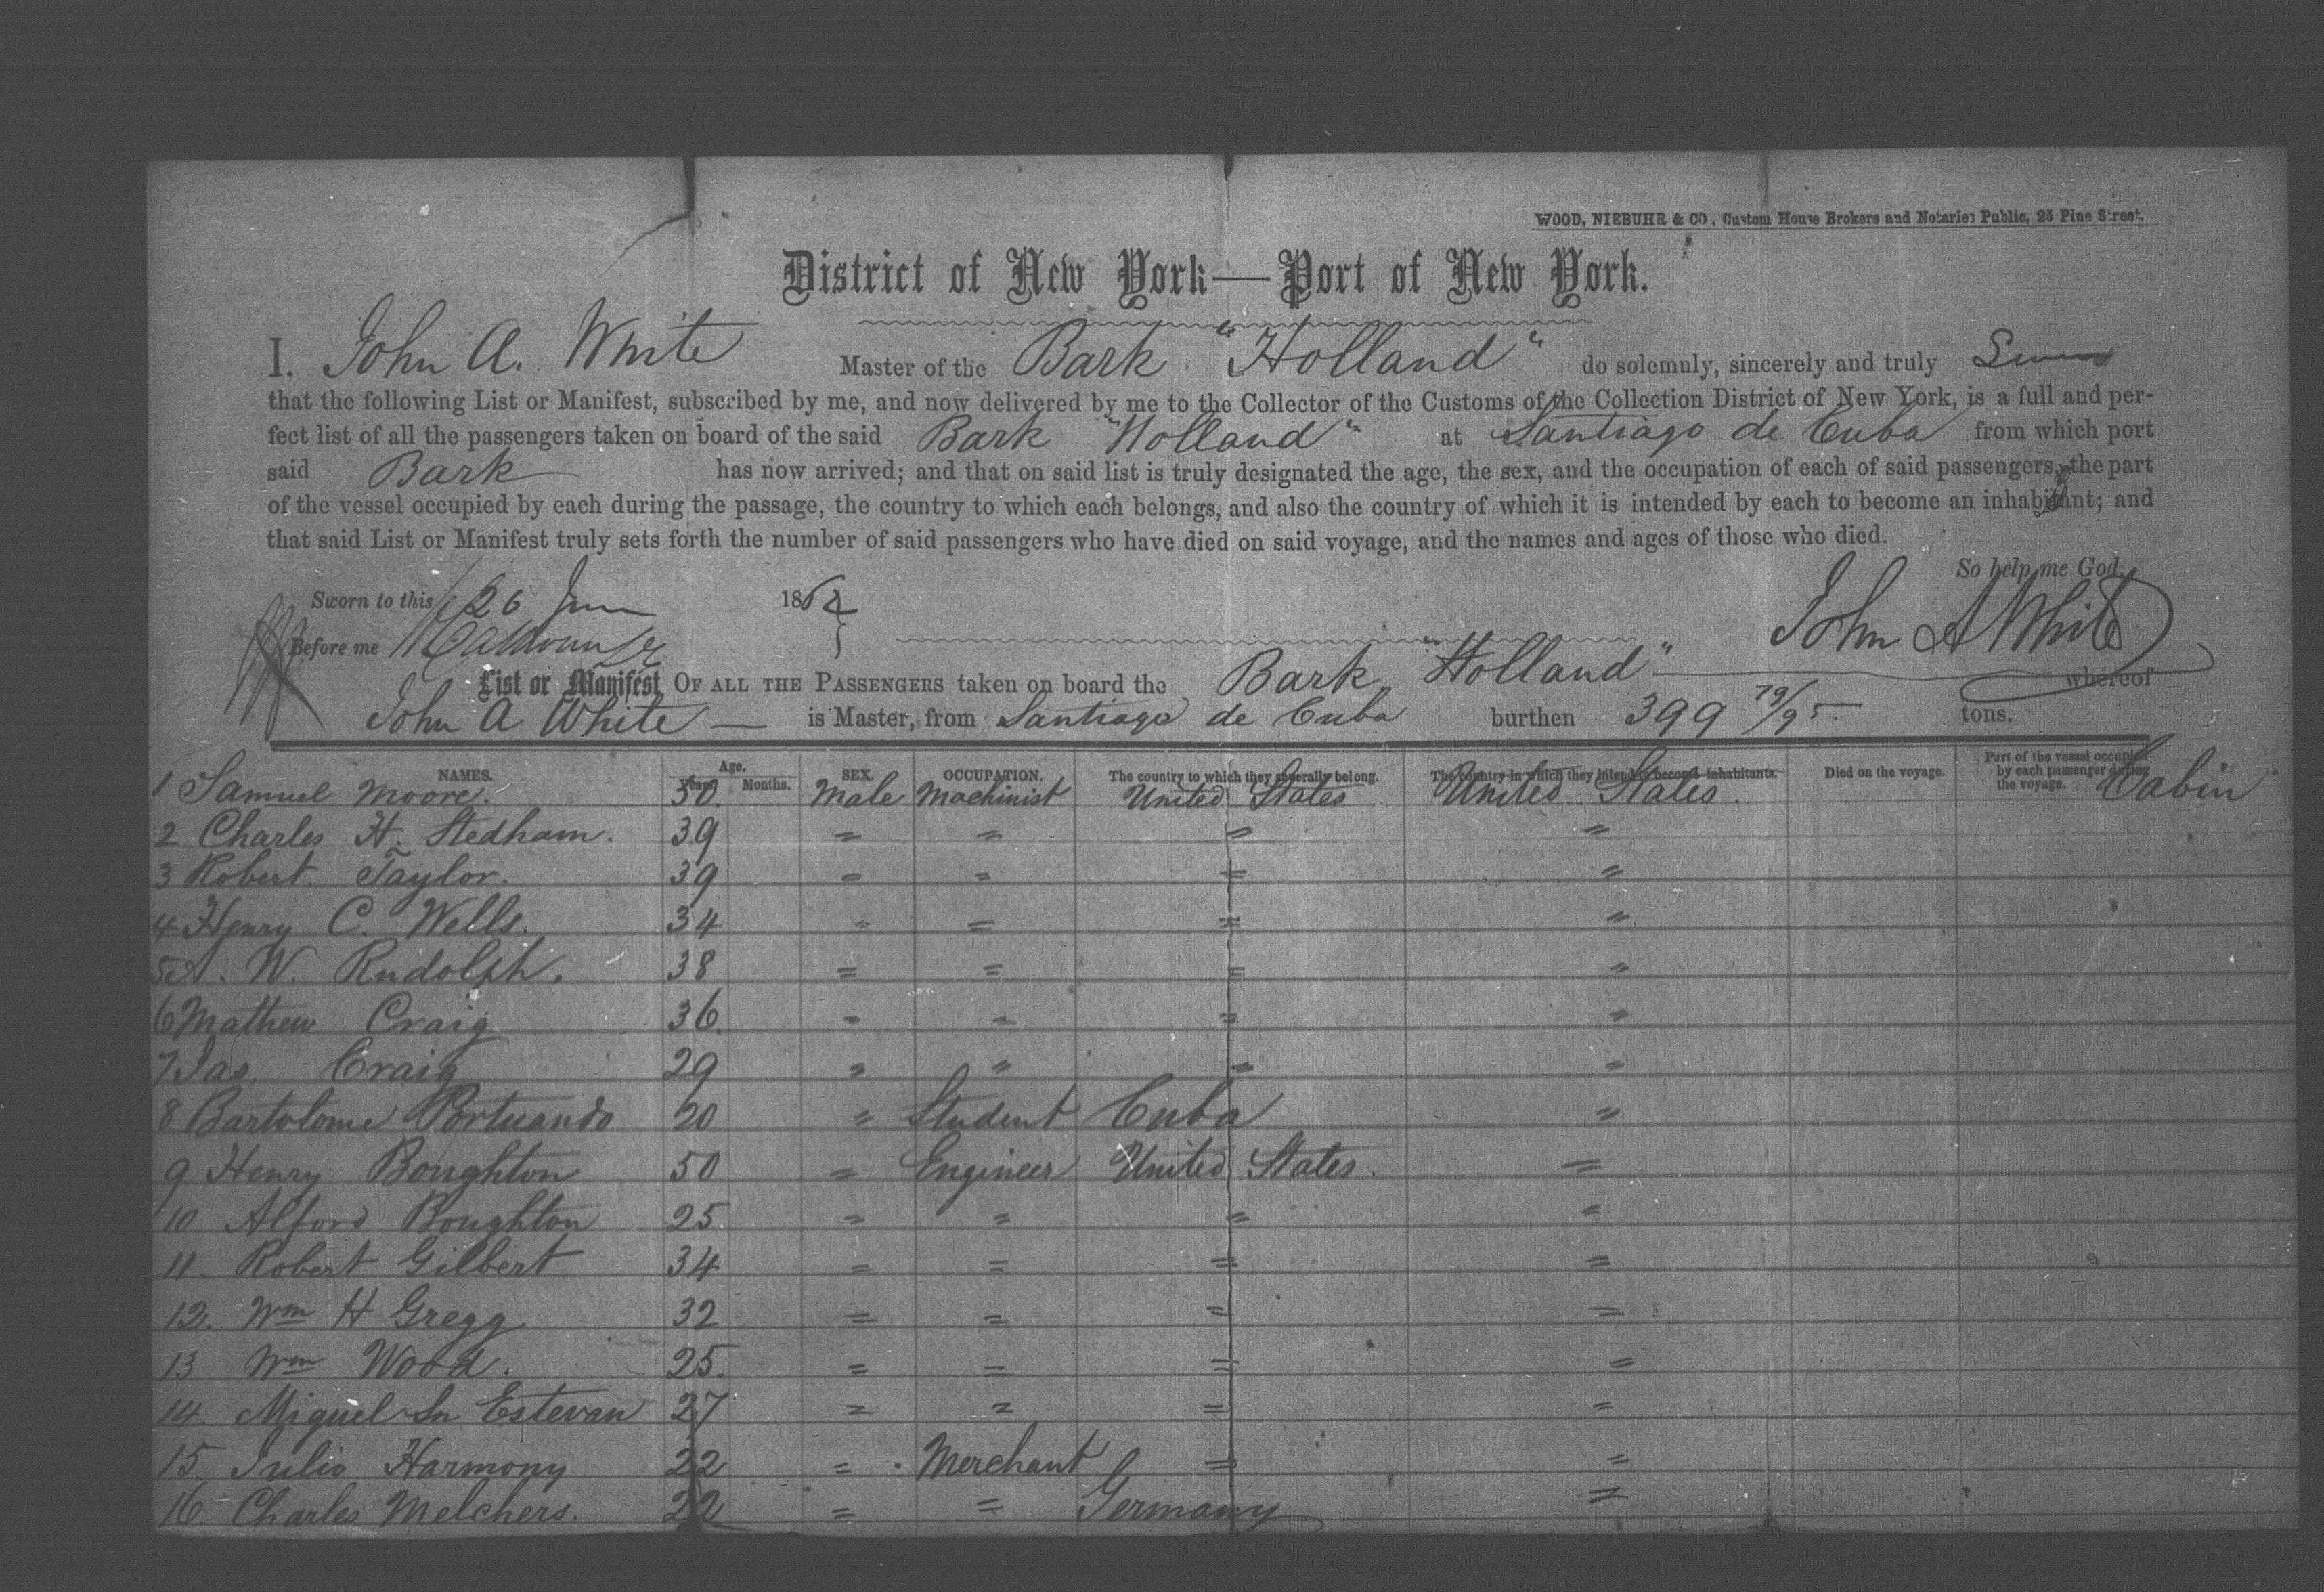 WOOD, NIEBUHR & CO., Custom House Brokers and Notaries Public, 25 Pine Street.
District of New York—Port of New York.
I, John A. White Master of the Bark "Holland" do solemnly, sincerely and truly Swear
that the following List or Manifest, subscribed by me, and now delivered by me to the Collector of the Customs of the Collection District of New York, is a full and per-
fect list of all the passengers taken on board of the said Bark "Holland" at Santiago de Cuba from which port
said Bark has now arrived; and that on said list is truly designated the age, the sex, and the occupation of each of said passengers, the part
of the vessel occupied by each during the passage, the country to which each belongs, and also the country of which it is intended by each to become an inhabitant; and
that said List or Manifest truly sets forth the number of said passengers who have died on said voyage, and the names and ages of those who died.
So help me God.
Sworn to this 26 June 1862
John A White
Before me
List or Manifest OF ALL THE PASSENGERS taken on board the Bark "Holland" whereof
John A White — is Master, from Santiago de Cuba burthen 399 79/95 tons.
NAMES. Age. Years. Months. SEX. OCCUPATION. The country to which they severally belong. The country in which they intend to become inhabitants. Died on the voyage. Part of the vessel occupied by each passenger during the voyage.
1 Samuel Moore. 30. Male Machinist United States United States. Cabin
2 Charles H. Stedham. 39 " " " "
3 Robert. Taylor. 39 " " " "
4 Henry C. Wells. 34 " " " "
5 A. W. Rudolph. 38 " " " "
6 Mathew Craig 36. " " " "
7 Jas. Craig 29 " " " "
8 Bartolome Portuando 20 " Student Cuba "
9 Henry Boughton 50 " Engineer United States. "
10 Alford Boughton 25. " " " "
11. Robert Gilbert 34 " " " "
12. Wm H Gregg. 32 " " " "
13 Wm Wood. 25. " " " "
14. Miguel Sn Estevan 27 " " " "
15. Julio Harmony 22 " Merchant " "
16. Charles Melchers. 22 " " Germany "